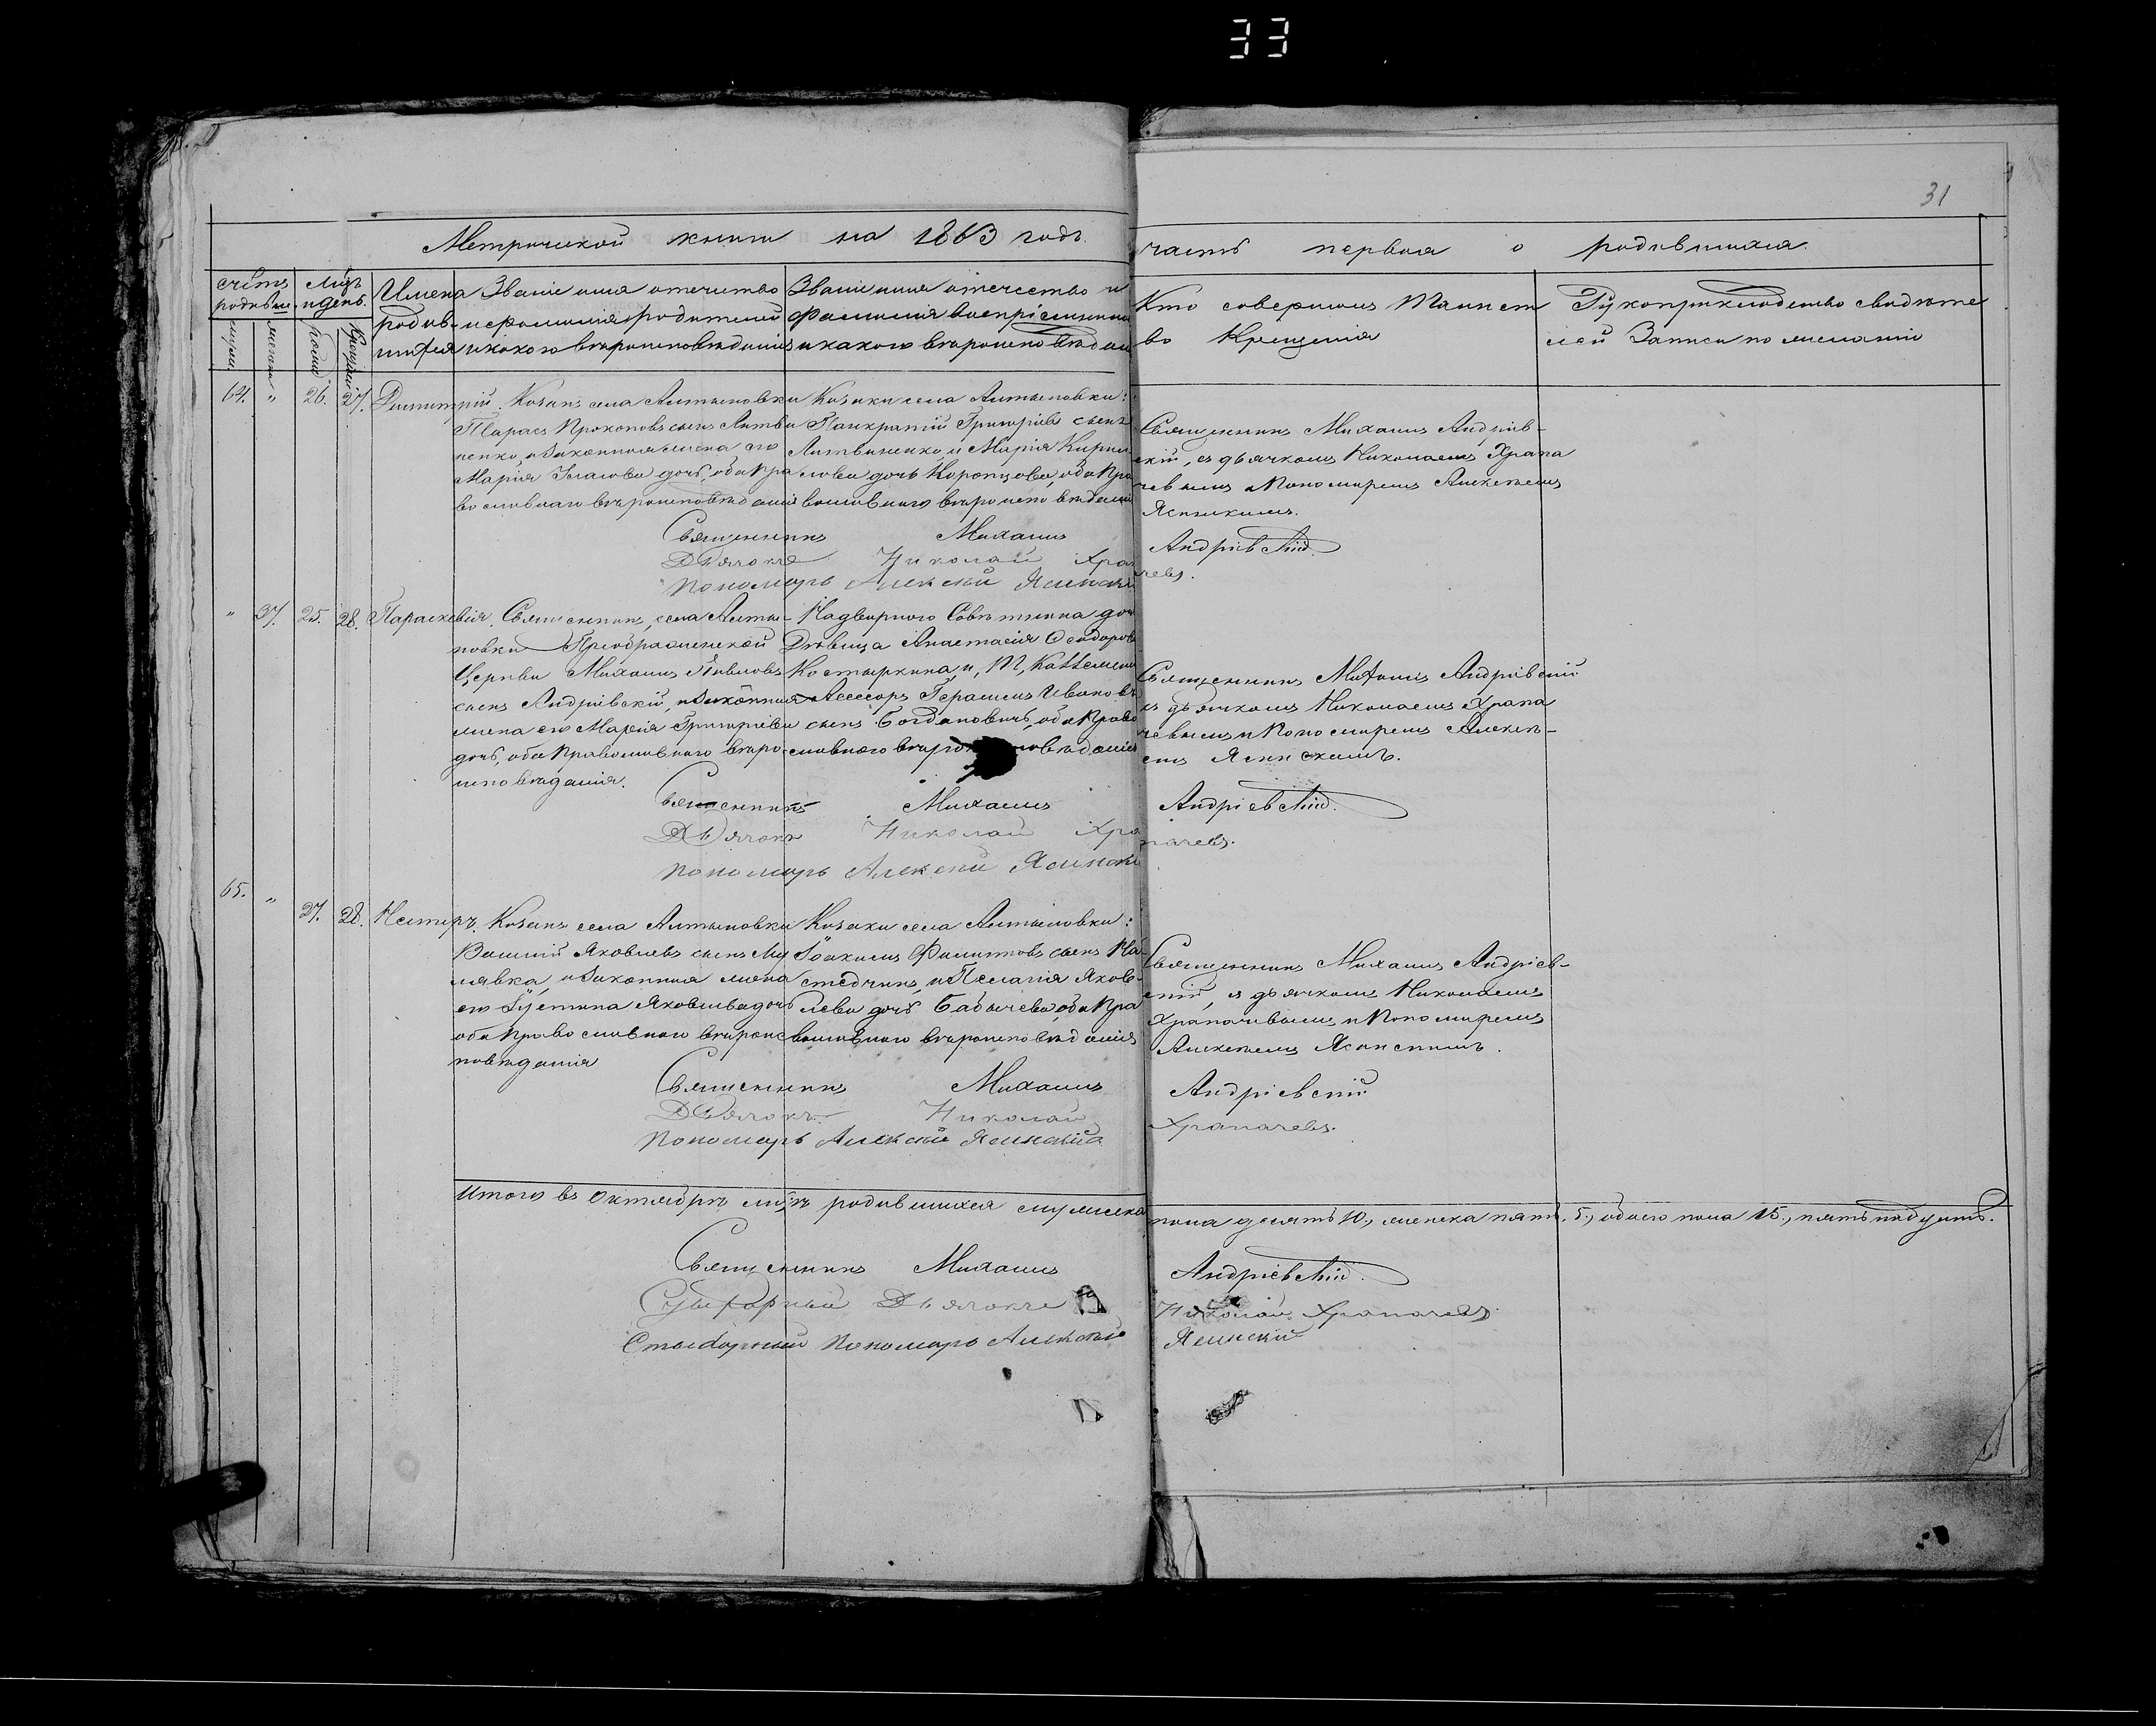 33
31
Метрической книги на 1863 годъ.
часть первая о родившихся.
счетъ родивш.
мѣцъ и день.
мужск.
женска
рожд.
крещенія
Имена родив-
шихся
Званіе имя отечество
и фамилія родителей
и какого вѣроисповѣданія
Званіе имя отечество и
фамилія воспріемник
и какого вѣроисповѣдан
Кто совершил Таинст
во Крещенія
Рукоприкладство свидѣте
лей Записи по желанію
64. " 26. 27. Димитрій.
Козакъ села Алтыновки
Тарасъ Прокоповъ сынъ Литви
ненко, и законная жена его
Марія Власова дочь, оба пра
вославнаго вѣроисповѣданія
Козаки села Алтыновки:
Панкратій Григоріевъ сынъ
Литвиненко, и Марія Кирил
лова дочь Коропцова, оба пра
вославнаго вѣроисповѣданія
Священникъ Михаилъ Андріев-
скій, съ дьячкомъ Николаемъ Храпа
чевымъ и Пономаремъ Алексѣемъ
Ясинскимъ.
Священникъ Михаилъ Андріевскій.
Дьячокъ Николай Храпачевъ.
Пономарь Алексѣй Ясинскій
" 37. 25. 28. Параскевія.
Священникъ, села Алты-
новки Преображенской
Церкви Михаилъ Павловъ
сынъ Андріевскій, и законная
жена его Марія Григоріева
дочь, оба православнаго вѣро-
исповѣданія.
Надворнаго Совѣтника дочь
Дѣвица Анастасія Феодорова
Костыркина, и,
Асессоръ Герасимъ Ивановъ
сынъ Богдановичъ, оба право
славнаго вѣроисповѣданія
Священникъ Михаилъ Андріевскій
съ дьячкомъ Николаемъ Храпа
чевымъ и Пономаремъ Алексѣ-
емъ Ясинскимъ.
Священникъ Михаилъ Андріевскій.
Дьячокъ Николай Храпачевъ.
Пономарь Алексѣй Ясинскій
65. " 27. 28. Нестиръ.
Козакъ села Алтыновки
Василій Яковлевъ сынъ Му
лявка, и законная жена
его Іустина Яковлева дочь
оба православнаго вѣроис
повѣданія
Козаки села Алтыновки:
Іоакимъ Филиповъ сынъ
и Пелагія Яков-
лева дочь Бабичева, оба пра
вославнаго вѣроисповѣданія
Священникъ Михаилъ Андріев-
скій, съ дьячкомъ Николаемъ
Храпачевымъ и Пономаремъ
Алексѣемъ Ясинскимъ.
Священникъ Михаилъ Андріевскій
Дьячокъ Николай Храпачевъ.
Пономарь Алексѣй Ясинскій
Итого въ Октябрѣ мѣцѣ родившихся мужеска пола десять 10., женска пять, 5., обоего пола 15., пятьнадцать.
Священникъ Михаилъ Андріевскій.
Дьячокъ Николай Храпачевъ
Стихарный Пономарь Алексѣй Ясинскій